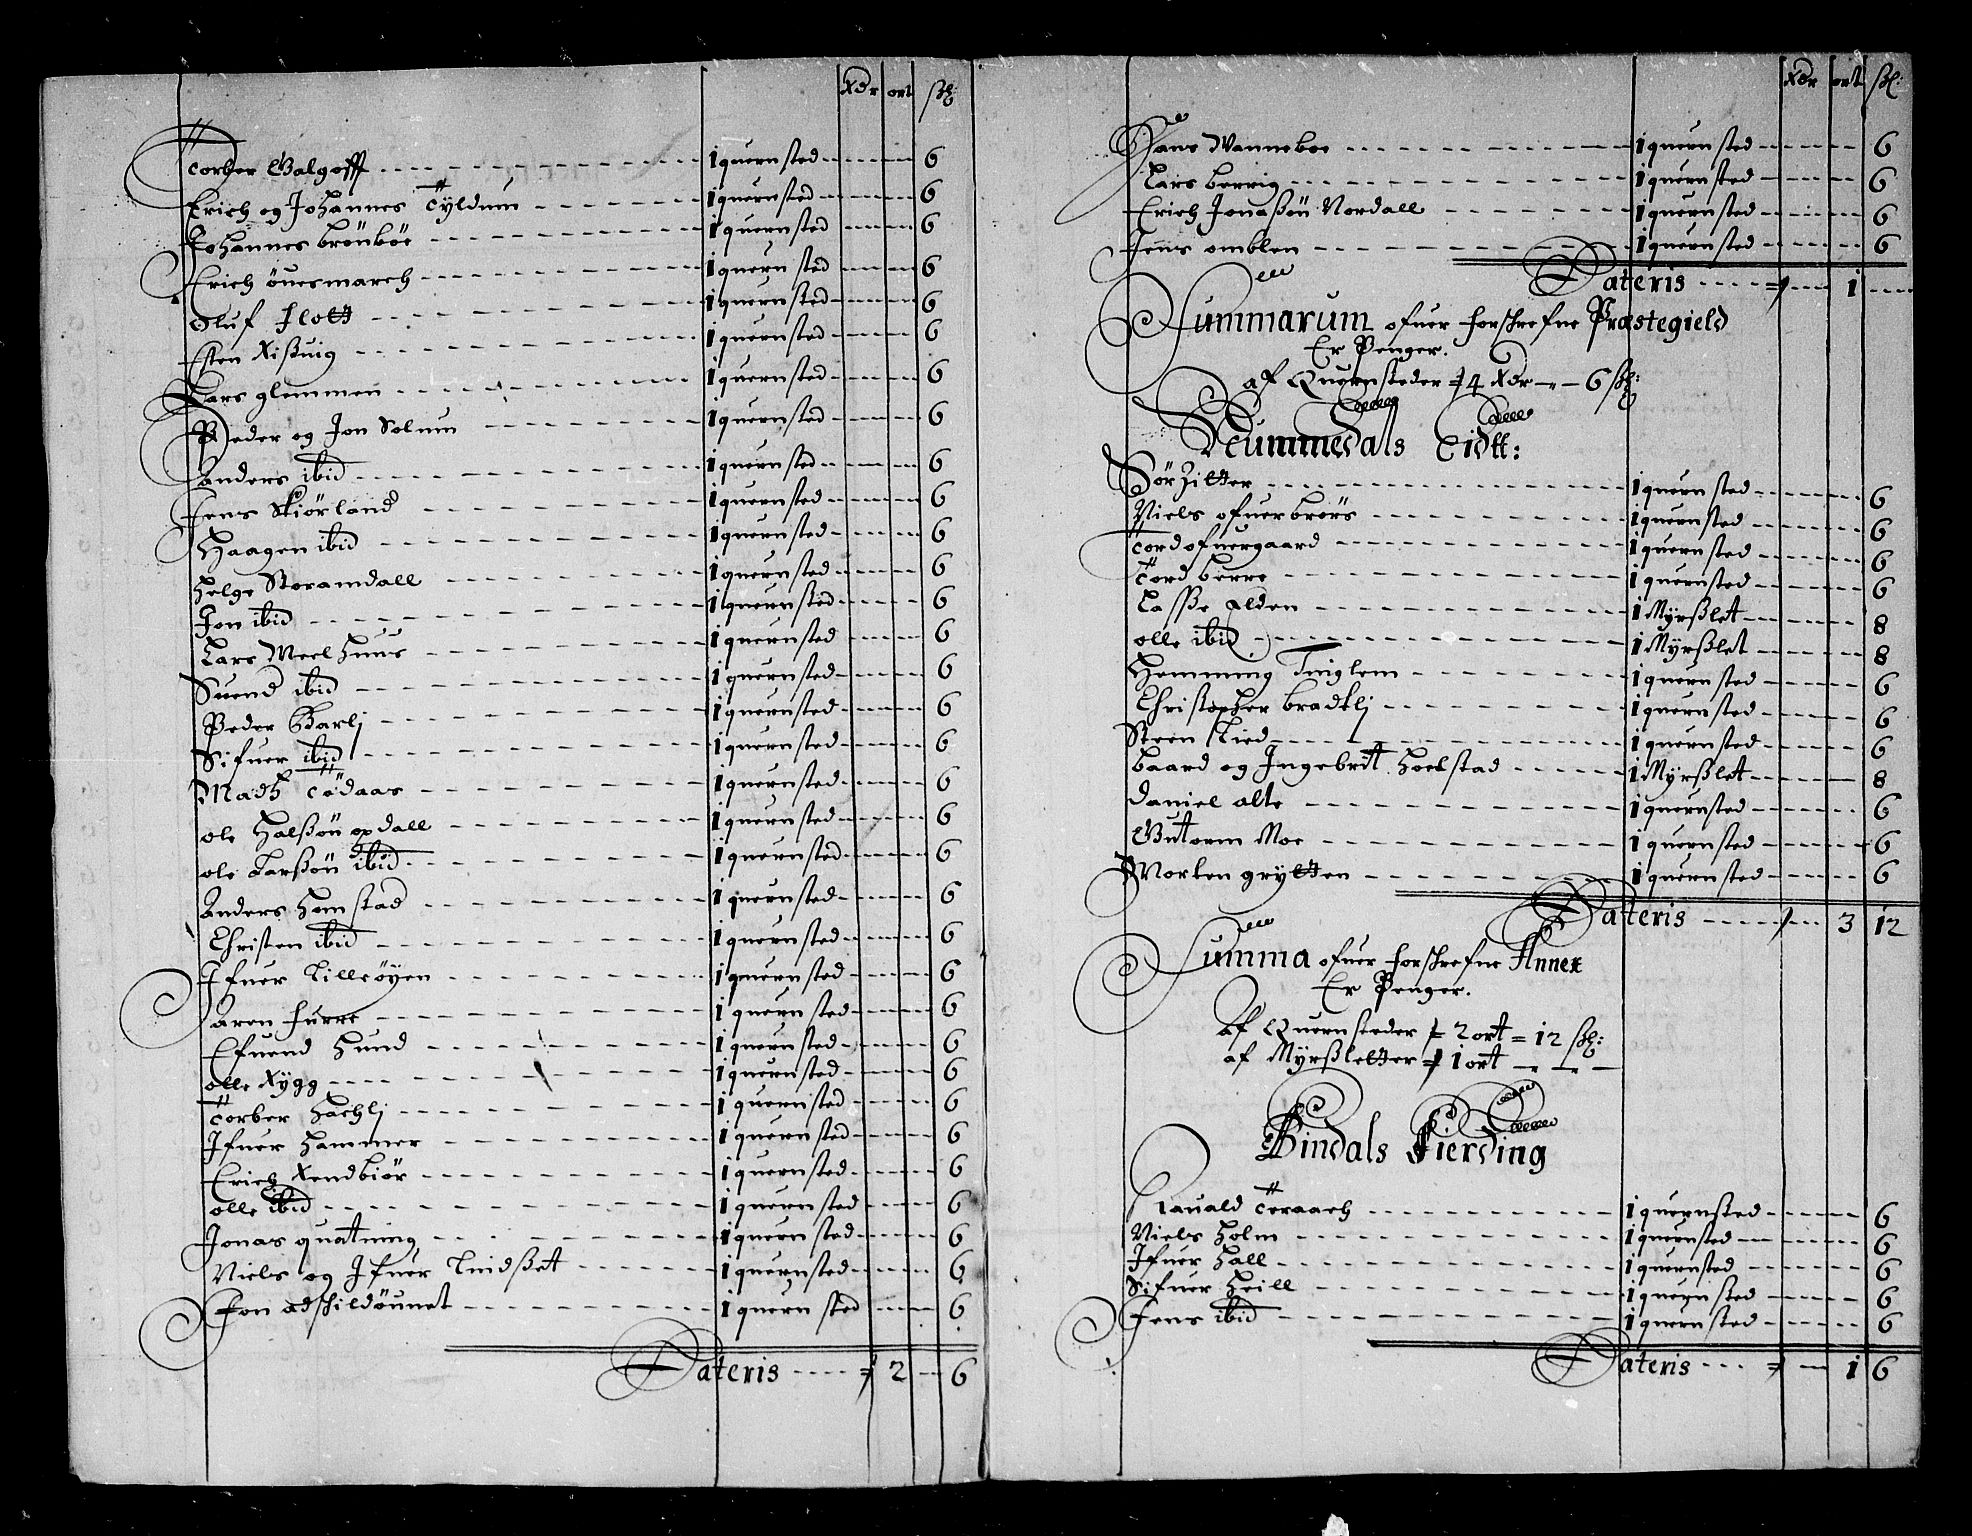 Xdr ort ßl:
Torber Galgofft 1 quernsted 6
Erich og Johannes Tyldum 1 quernsted 6
Johannes brönböe 1 quernsted 6
Erich öuesmarch 1 quernsted 6
Oluf Flott 1 quernsted 6
Esten Rißuig 1 quernsted 6
Lars glemmen 1 quernsted 6
Peder og Jon Solum 1 quernsted 6
Anders ibid 1 quernsted 6
Jens Skiörland 1 quernsted 6
Haagen ibid 1 quernsted 6
Helge Storamdall 1 quernsted 6
Jon ibid 1 quernsted 6
Lars Meelhuus 1 quernsted 6
Suend ibid 1 quernsted 6
Peder Barlj 1 quernsted 6
Sifuer ibid 1 quernsted 6
Madz Tödaas 1 quernsted 6
ole Halßön opdall 1 quernsted 6
ole Larßön ibid 1 quernsted 6
Anders Hemstad 1 quernsted 6
Christen ibid 1 quernsted 6
Ifuer Lilleöyen 1 quernsted 6
Aren furre 1 quernsted 6
Efuend Hund 1 quernsted 6
olle Rygg 1 quernsted 6
Torber Hachlj 1 quernsted 6
Ifuer Hammer 1 quernsted 6
Erich Rendbiör 1 quernsted 6
olle ibid 1 quernsted 6
Jonas quatning 1 quernsted 6
Niels og Ifuer Lindßet 1 quernsted 6
Jon odschildöunet 1 quernsted 6
Lateris 2 6
Xdr ort ßl:
Hans Wanneboe 1 quernsted 6
Lars berrig 1 quernsted 6
Erich Jonaßön Nordall 1 quernsted 6
Jens omblen 1 quernsted 6
Lateris 1
Summarum ofuer forschrefne Præstegield
Er Penger.
af Quernsteder 4 Xdr 6 ßl:
Nummedals Eidtt:
Sörzitter 1 quernsted 6
Niels ofuerbrörs 1 quernsted 6
Tord ofuergaard 1 quernsted 6
Tord berre 1 quernsted 6
Lasse alden 1 Myrßlet 8
olle ibid 1 Myrßlet 8
Hemming Tinglem 1 quernsted 6
Christopher bradtlj 1 quernsted 6
Steen Lied 1 quernsted 6
baard og Ingebrit Hoelstad 1 Myrßlet 8
Daniel alte 1 quernsted 6
Gutorm Moe 1 quernsted 6
Morten grytten 1 quernsted 6
Lateris 3 12
Summa ofuer forschrefne Annex
Er Penger.
Af Quernsteder 2 ort = 12 ßl:
af Myrßletter 1 ort
Bindals Fierding
Hauald Teraach 1 quernsted 6
Niels Holm 1 quernsted 6
Ifuer Hall 1 quernsted 6
Sifuer Heill 1 quernsted 6
Jens ibid 1 quernsted 6
Lateris 1 6